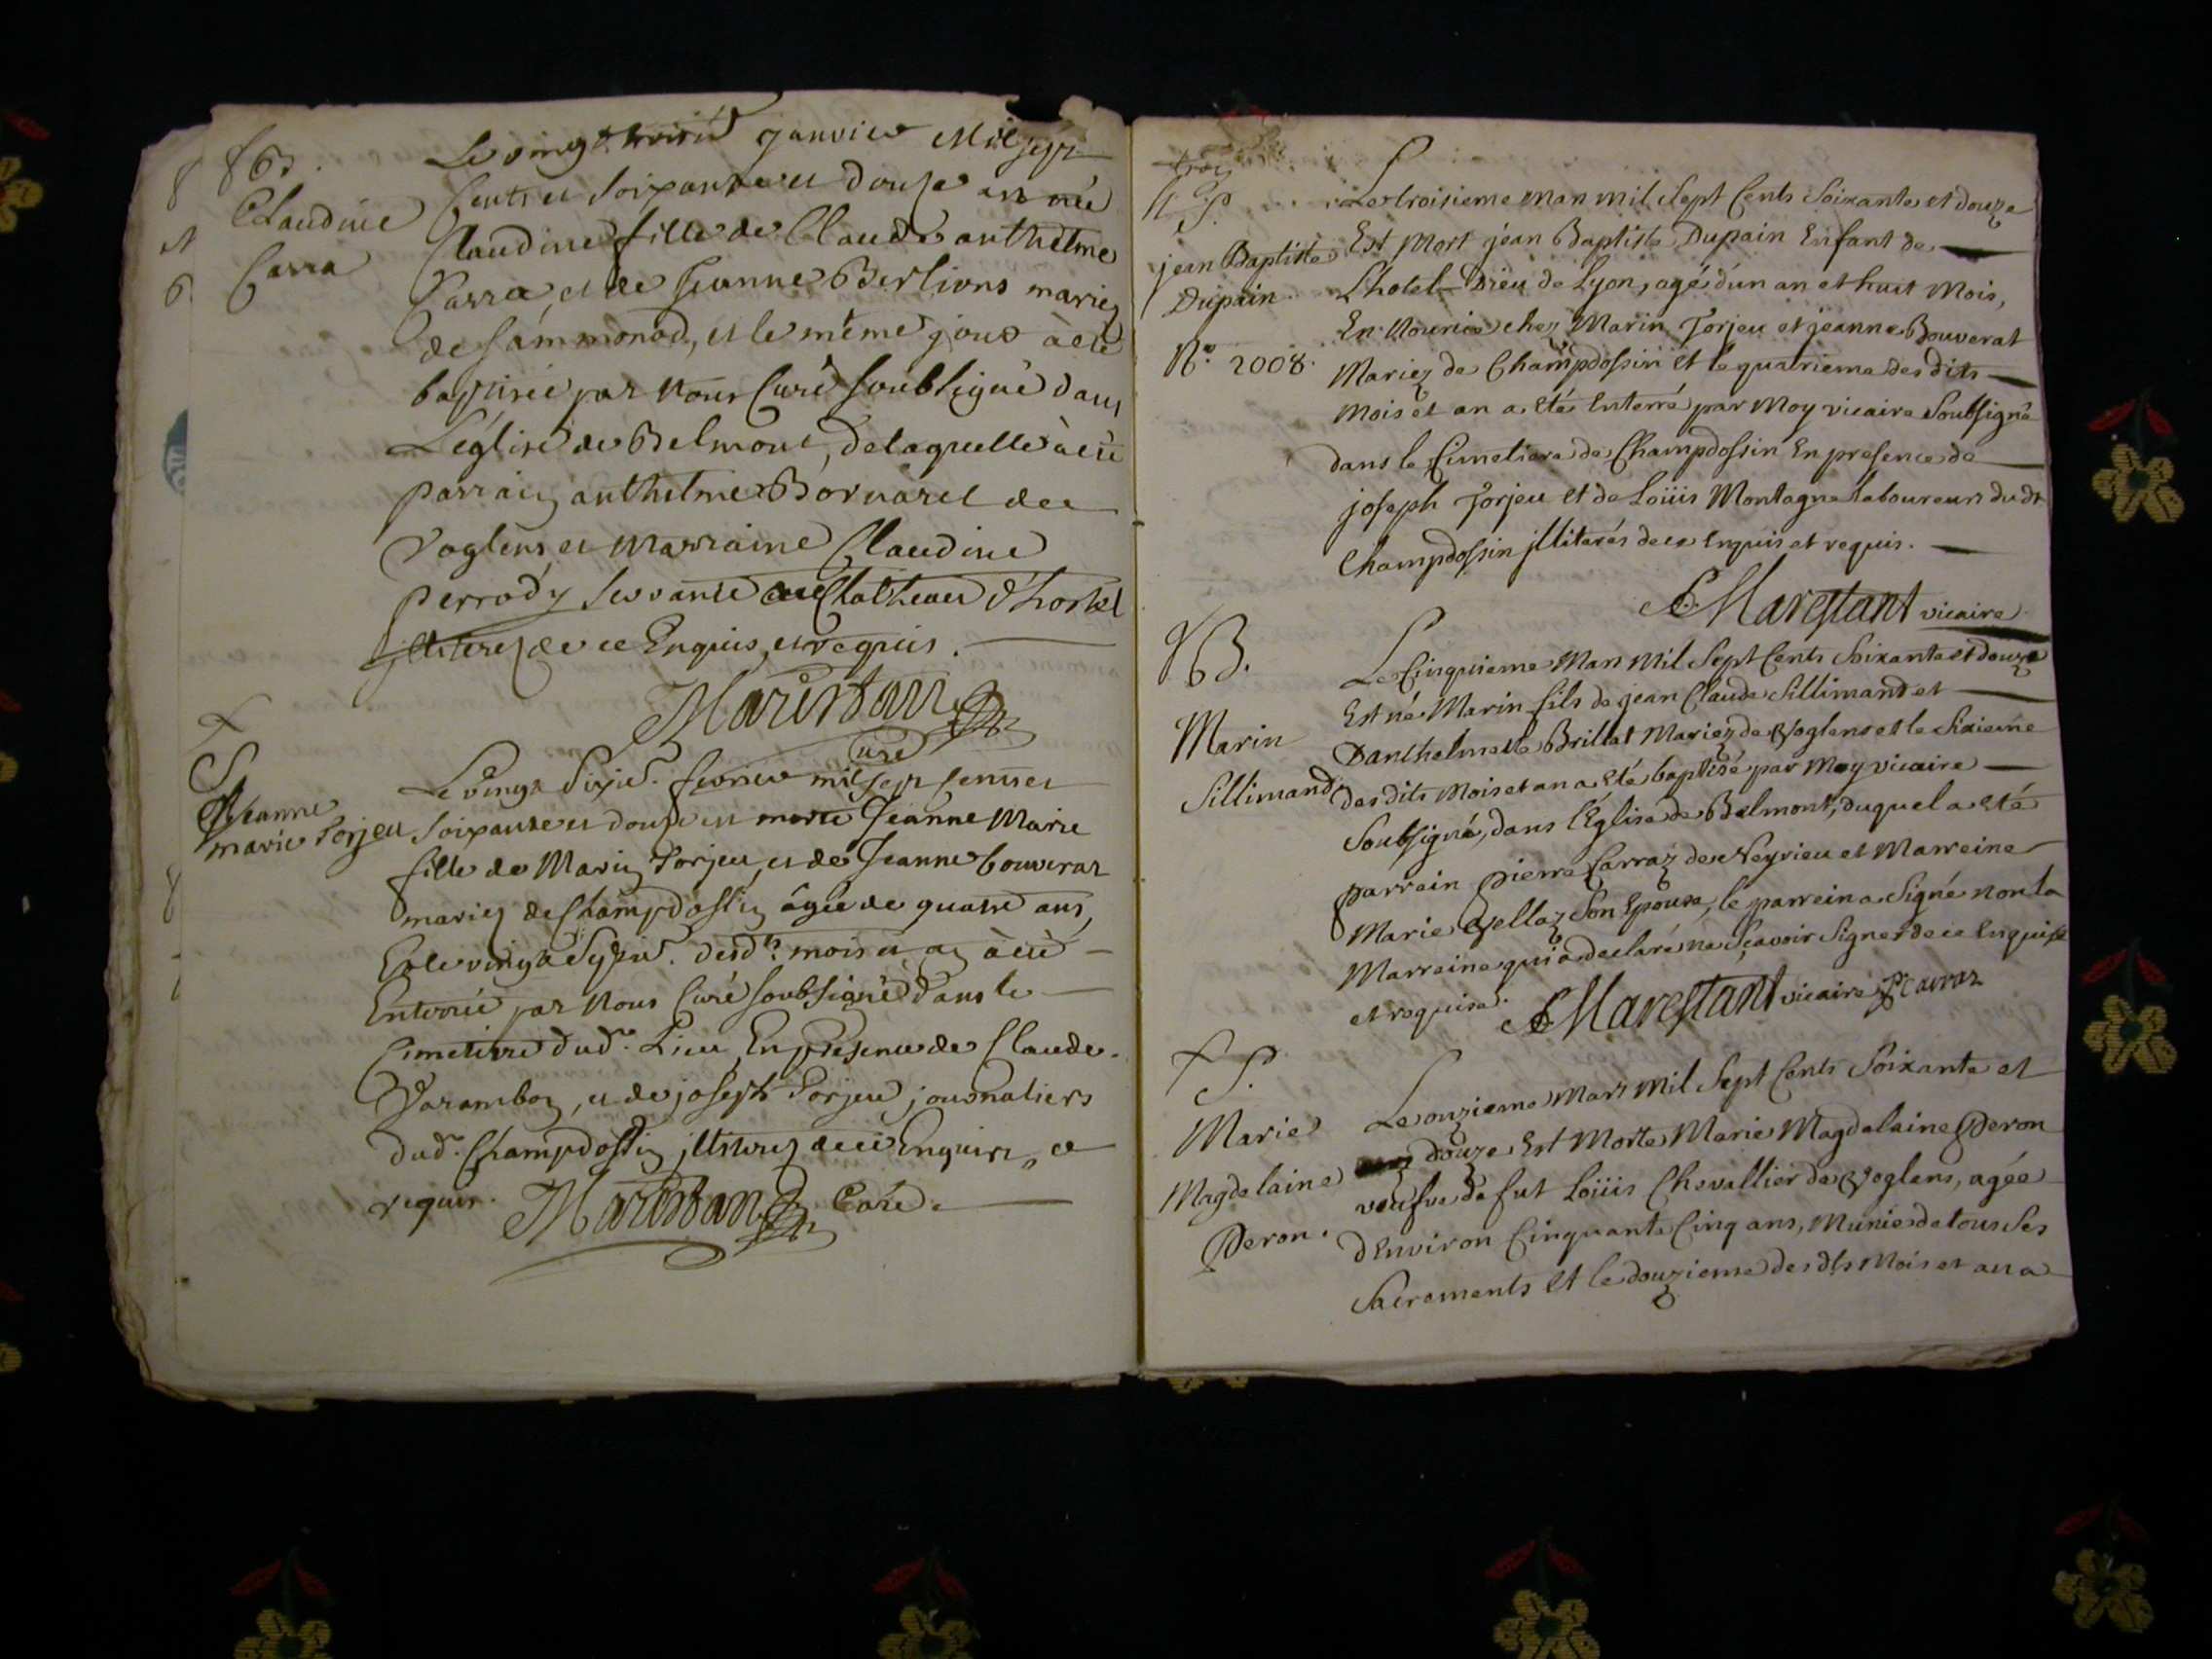 8 B.
Claudine
Carra
Le vingt troisie janvier Mil sept
Cents et soixante et douze est née
Claudine fille de Claude anthelme
Carra, et de Jeanne Berlions mariez
de sammonod, et le même jour à été
baptisée par nous Curé soubsigné dans
L'église de Belmont, de laquelle à été
parrain anthelme Bornarel de
Voglens et marraine Claudine
perrody servante au Chatheau d'hostel
illiterez de ce Enquis, et requis.
Marestan
Curé
S
Jeanne
marie Torjeu
Le vingt sixie. fevrier mil sept cents et
soixante et douze est morte Jeanne Marie
fille de Marin Torjeu, et de Jeanne bouverat
mariez de Champdossin âgée de quatre ans,
Et le vingt Septie. desdts. mois et an à été
Enterrée par Nous Curé soubsigné dans le
Cimetierre dud. Lieu En présence de Claude
Varambon, et de joseph Torjeu journaliers
dud. Champdossin illiterez de ce Enquis, et
requis. Marestan Curé.
trois
S.
jean Baptiste
Dupain
No. 2008.
Le troisieme mars mil Sept Cents Soixante et douze
Est Mort jean Baptiste Dupain Enfant de
L'hotel-Dieu de Lyon, agé d'un an et huit Mois,
En Nourice chez Marin Torjeu et jeanne Bouverat
Mariez de Champdossin et le quatrieme des dits
Mois et an a eté Enterré par Moy vicaire Soubsigné
dans le Cimetiere de Champdossin En presence de
joseph Torjeu et de Loüis Montagne laboureurs du dt
Champdossin jlliterés de ce Enquis et requis.
Marestant vicaire
B.
Marin
Sillimand
Le Cinquieme Mars Mil Sept Cents Soixante et douze
Est né Marin fils de jean Claude Sillimand et
D'anthelmette Brillat Mariez de Voglens et le Sixieme
des dits Mois et an a eté baptisé par Moy vicaire
Soubsigné, dans l'Église de Belmont, duquel a eté
parrein pierre Carraz de Neyrieu et Marreine
Marie Gellaz Son Epouse, le parrein a Signé non la
Marreine qui a declaré ne Sçavoir Signer de ce Enquise
et requise. Marestant vicaire P Carraz
S.
Marie
Magdelaine
Peron.
Le onzieme Mars mil Sept Cents Soixante et
douze Est Morte Marie Magdelaine Peron
veufve de fut Loüis Chevallier de Voglens, agée
d'Environ Cinquante Cinq ans, Munie de tous Ses
Sacrements et le douzieme des dts Mois et an a